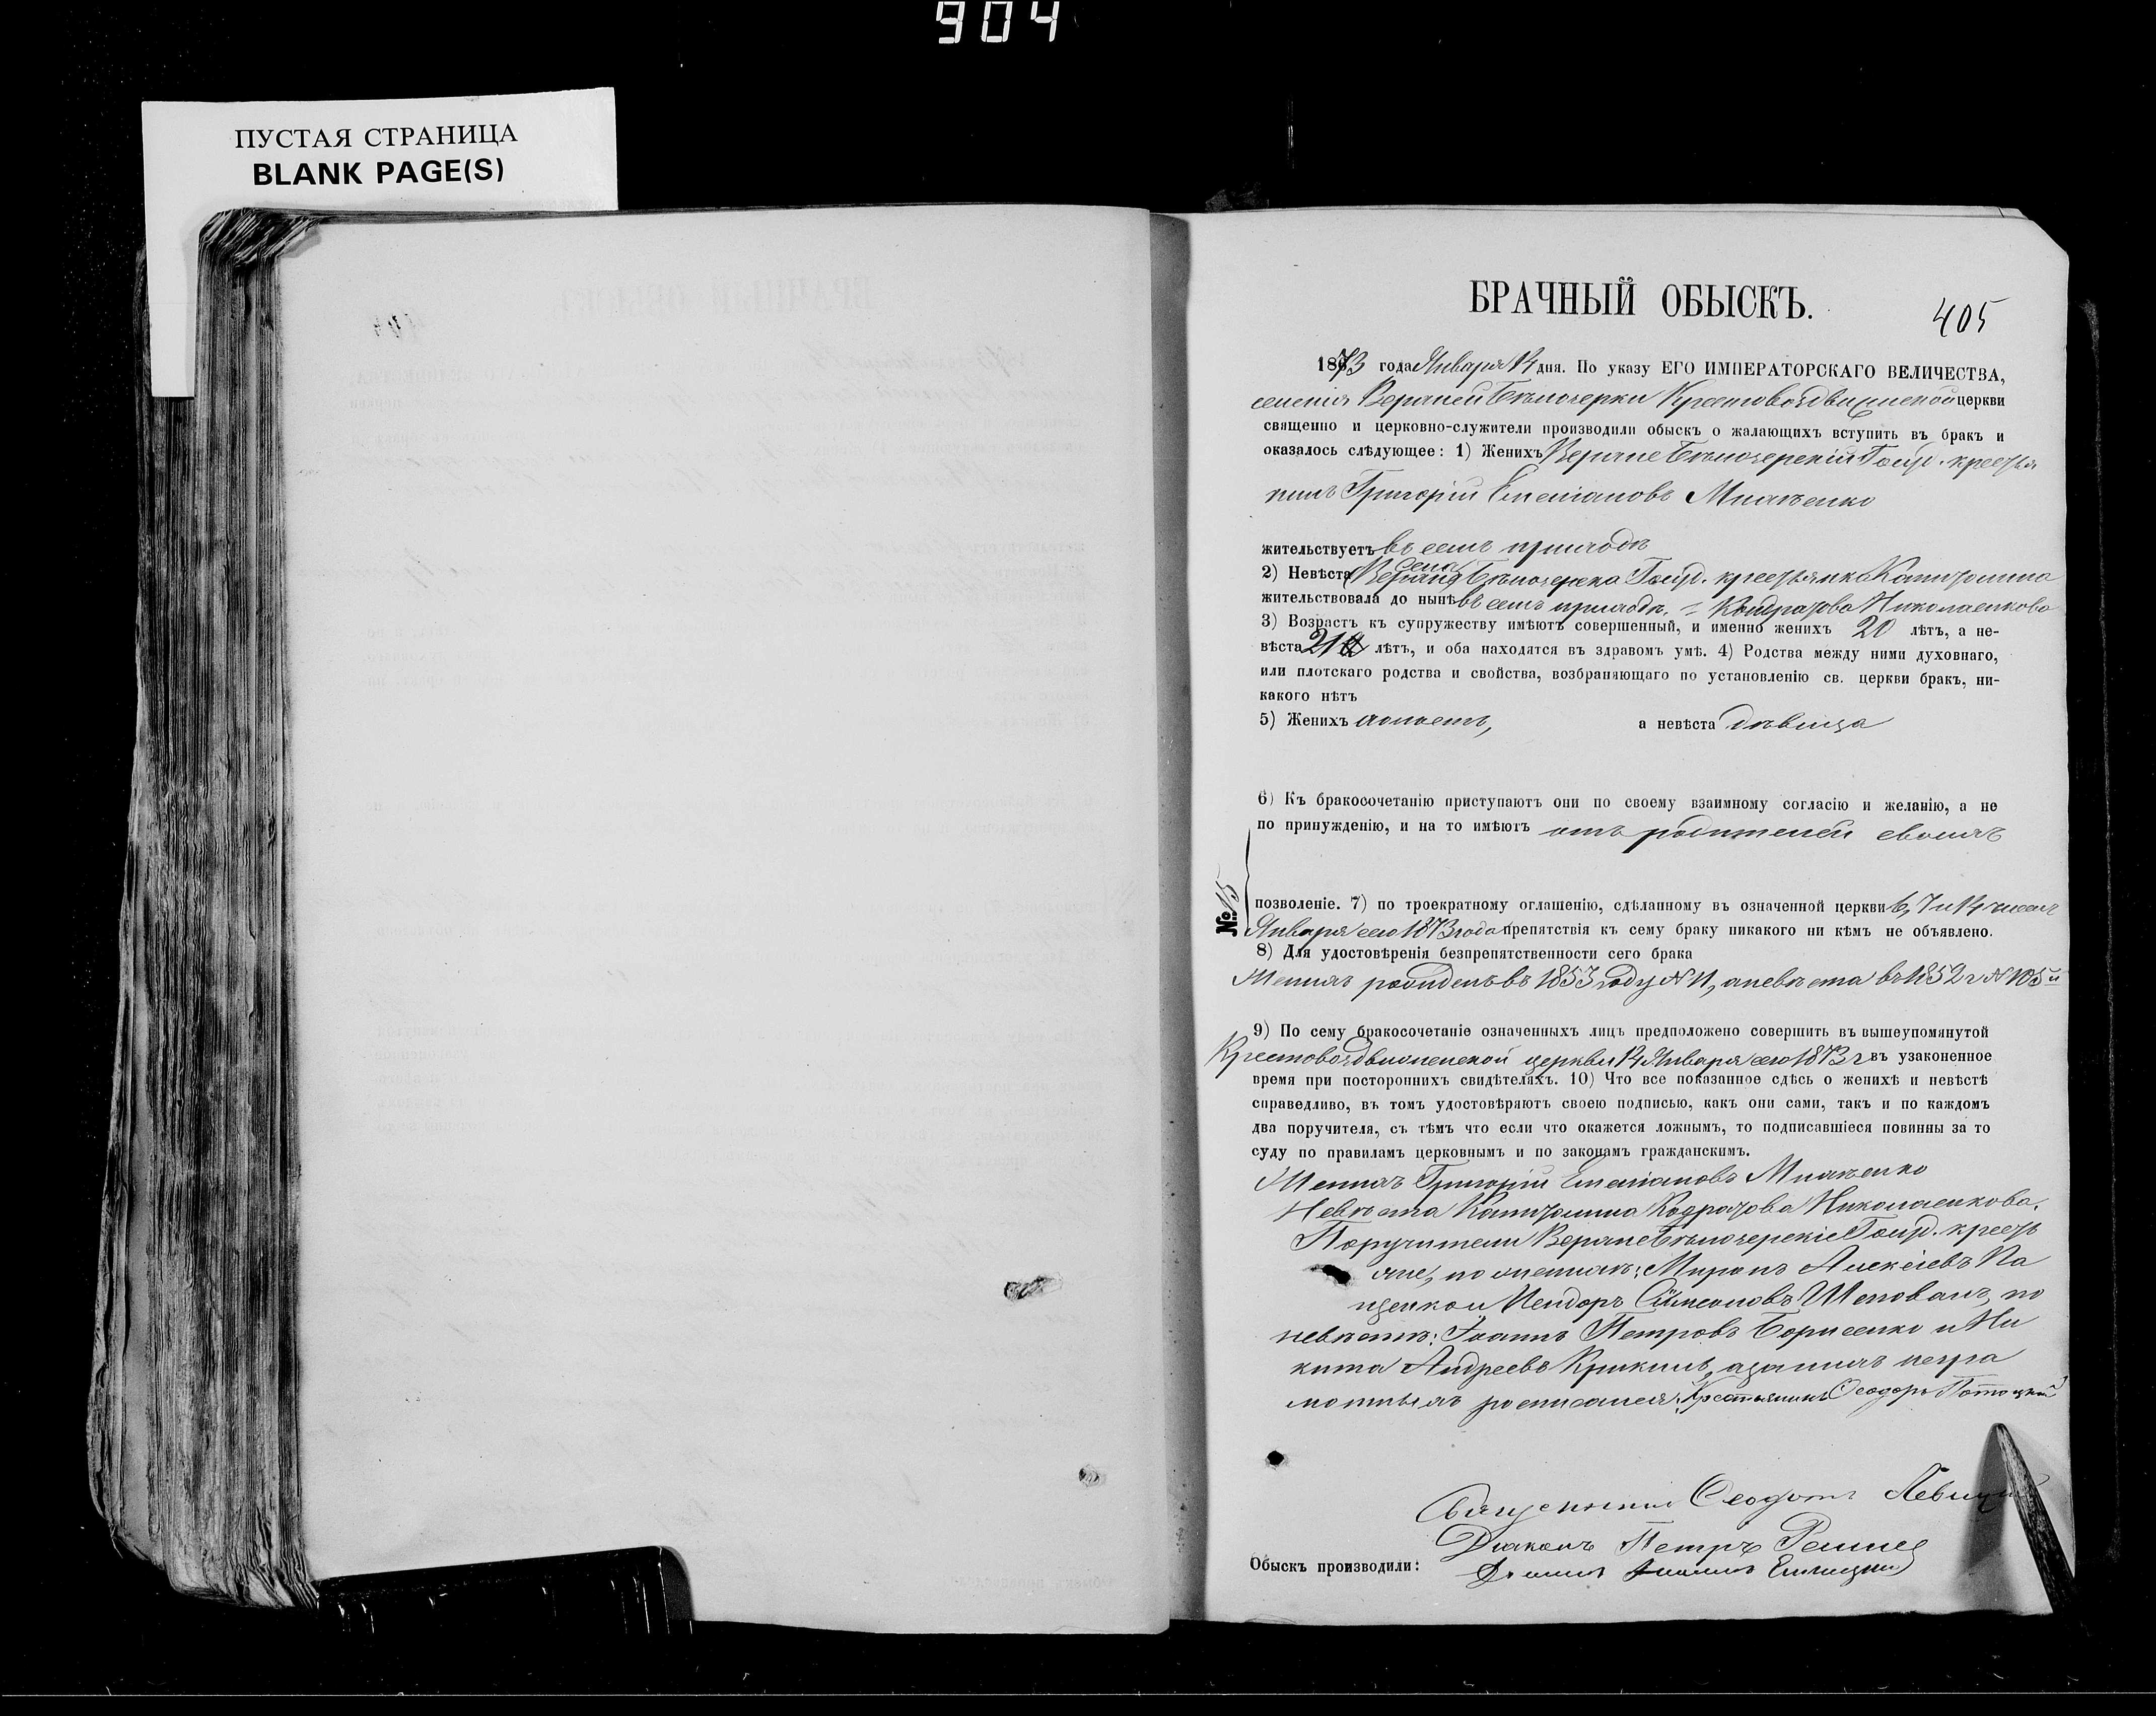 904
ПУСТАЯ СТРАНИЦА
BLANK PAGE(S)
БРАЧНЫЙ ОБЫСКЪ.
405
1873 года Января 14 дня. По указу ЕГО ИМПЕРАТОРСКАГО ВЕЛИЧЕСТВА,
селенія Верхней Бѣлозерки Крестовоздвиженской церкви
священно и церковно-служители производили обыскъ о жалающихъ вступить въ бракъ и
оказалось слѣдующее: 1) Женихъ Верхне Бѣлозерскій Госуд. крестья
нинъ Григорій Емеліановъ
жительствуетъ въ семъ приходѣ
2) Невѣста села Верхн. Бѣлозерска Госуд. крестьянка Капитолина
жительствовала до нынѣ въ семъ приходѣ. = Кондратова Николаенкова
3) Возрастъ къ супружеству имѣютъ совершенный, и именно женихъ 20 лѣтъ, а не-
вѣста 21 лѣтъ, и оба находятся въ здравомъ умѣ. 4) Родства между ними духовнаго,
или плотскаго родства и свойства, возбраняющаго по установленію св. церкви бракъ, ни-
какого нѣтъ
5) Женихъ холостъ, а невѣста дѣвица
6) Къ бракосочетанію приступаютъ они по своему взаимному согласію и желанію, а не
по принужденію, и на то имѣютъ отъ родителей своихъ
№ 15
позволеніе. 7) по троекратному оглашенію, сдѣланному въ означенной церкви 6, 7 и 14 числъ
Января сего 1873 года препятствія къ сему браку никакого ни кѣмъ не объявлено.
8) Для удостовѣренія безпрепятственности сего брака
Женихъ рожденъ въ 1853 году № 11, а невѣста въ 1852 г № 105й
9) По сему бракосочетаніе означенныхъ лицъ предположено совершить въ вышеупомянутой
Крестовоздвиженской церкви 14 Января сего 1873 г въ узаконенное
время при постороннихъ свидѣтеляхъ. 10) Что все показанное сдѣсь о женихѣ и невѣстѣ
справедливо, въ томъ удостовѣряютъ своею подписью, какъ они сами, такъ и по каждомъ
два поручителя, съ тѣмъ что если что окажется ложнымъ, то подписавшіеся повинны за то
суду по правиламъ церковнымъ и по законамъ гражданскимъ.
Женихъ Григорій Емеліановъ
Невѣста Капитолина Кодратова Николаенкова.
Поручители Верхне Бѣлозерскіе Госуд. кресть
яне, по женихѣ: Миронъ Алексіевъ Па
щенко и Исидоръ Симеоновъ Шеповалъ, по
невѣстѣ: Іоаннъ Петровъ Борисенко и Ни
кита Андреевъ Крикунъ, а за нихъ негра
мотныхъ росписался: Крестьянинъ Ѳеодоръ Потоцкій
Священникъ Ѳеодотъ Левицкій
Діаконъ Петръ
Обыскъ производили: